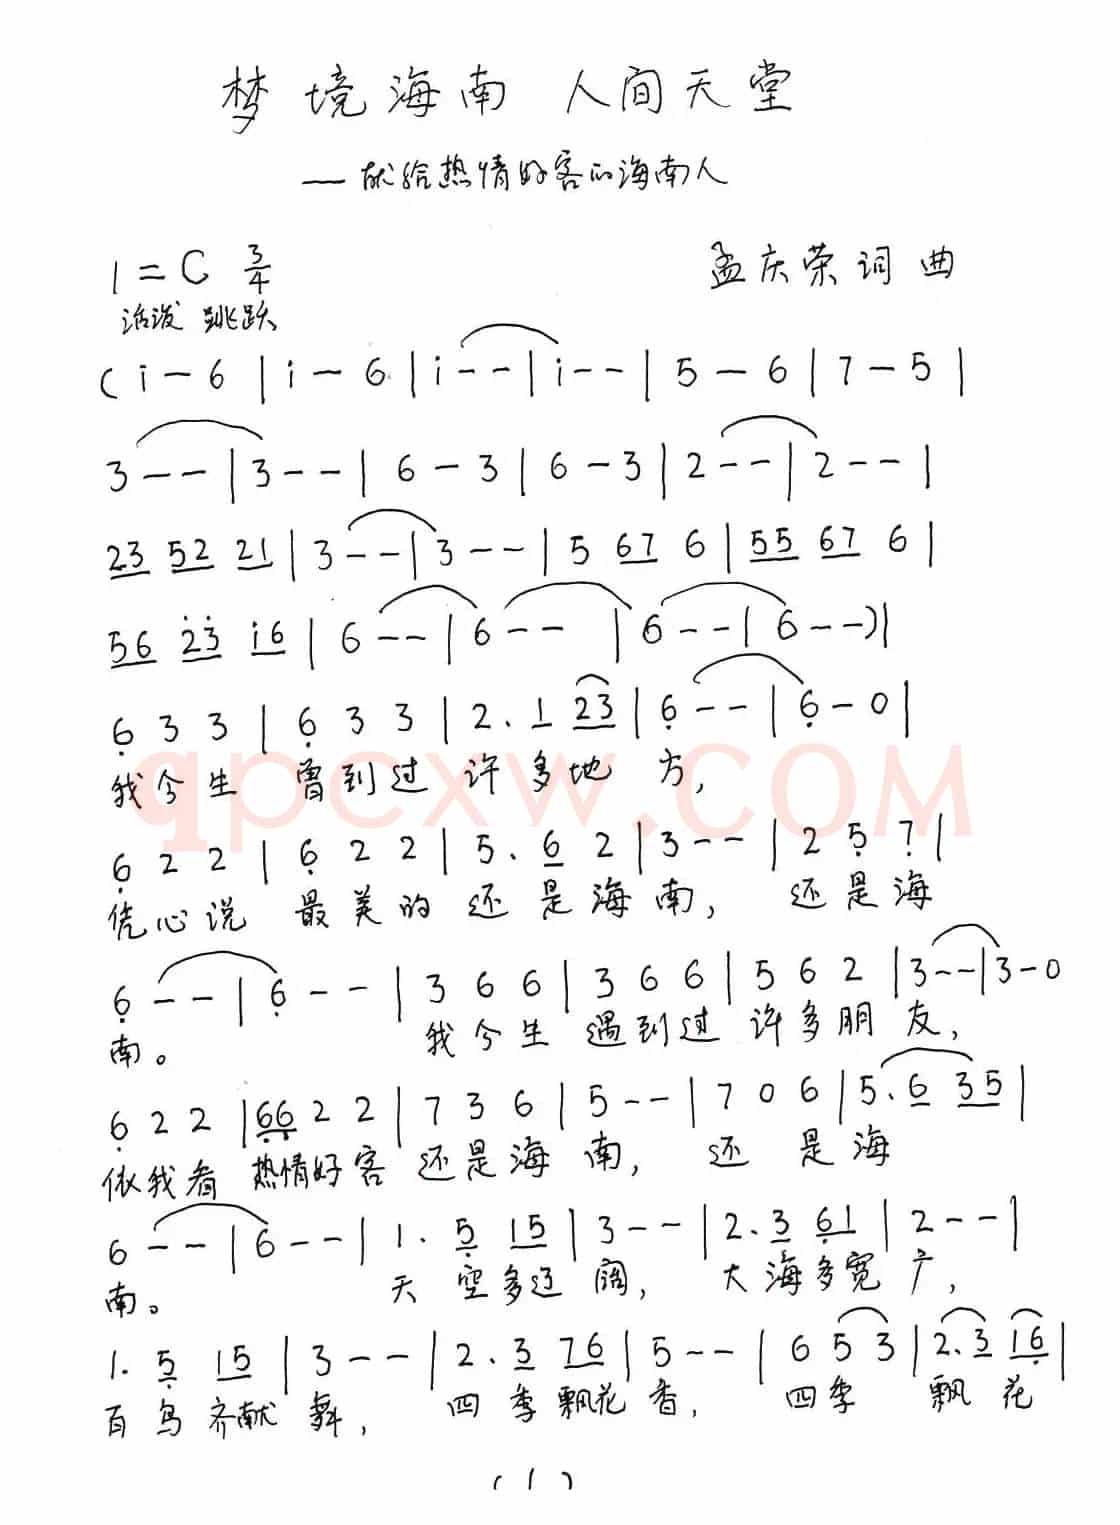 梦境海南 人间天堂
—献给热情好客的海南人
1=C 3/4 孟庆荣词曲
活泼 跳跃
(i - 6 | i - 6 | i - - | i - - | 5 - 6 | 7 - 5 |
3 - - | 3 - - | 6 - 3 | 6 - 3 | 2 - - | 2 - - |
23 52 21 | 3 - - | 3 - - | 5 67 6 | 55 67 6 |
56 23 i6 | 6 - - | 6 - - | 6 - - | 6 - -) |
6 3 3 | 6 3 3 | 2. 1 23 | 6 - - | 6 - 0 |
我今生 曾到过 许多地 方,
6 2 2 | 6 2 2 | 5. 6 2 | 3 - - | 2 5 7 |
凭心说 最美的 还是海南, 还是海
6 - - | 6 - - | 3 6 6 | 3 6 6 | 5 6 2 | 3 - - | 3 - 0
南。 我今生 遇到过 许多朋 友,
6 2 2 | 66 2 2 | 7 3 6 | 5 - - | 7 0 6 | 5. 6 35 |
依我看 热情好客 还是海 南, 还 是 海
6 - - | 6 - - | 1. 5 15 | 3 - - | 2. 3 61 | 2 - - |
南。 天 空多辽 阔, 大海多宽 广,
1. 5 15 | 3 - - | 2. 3 76 | 5 - - | 6 5 3 | 2. 3 16 |
百鸟齐献 舞, 四季飘花 香, 四季 飘 花
(1)
qpcxw.COM